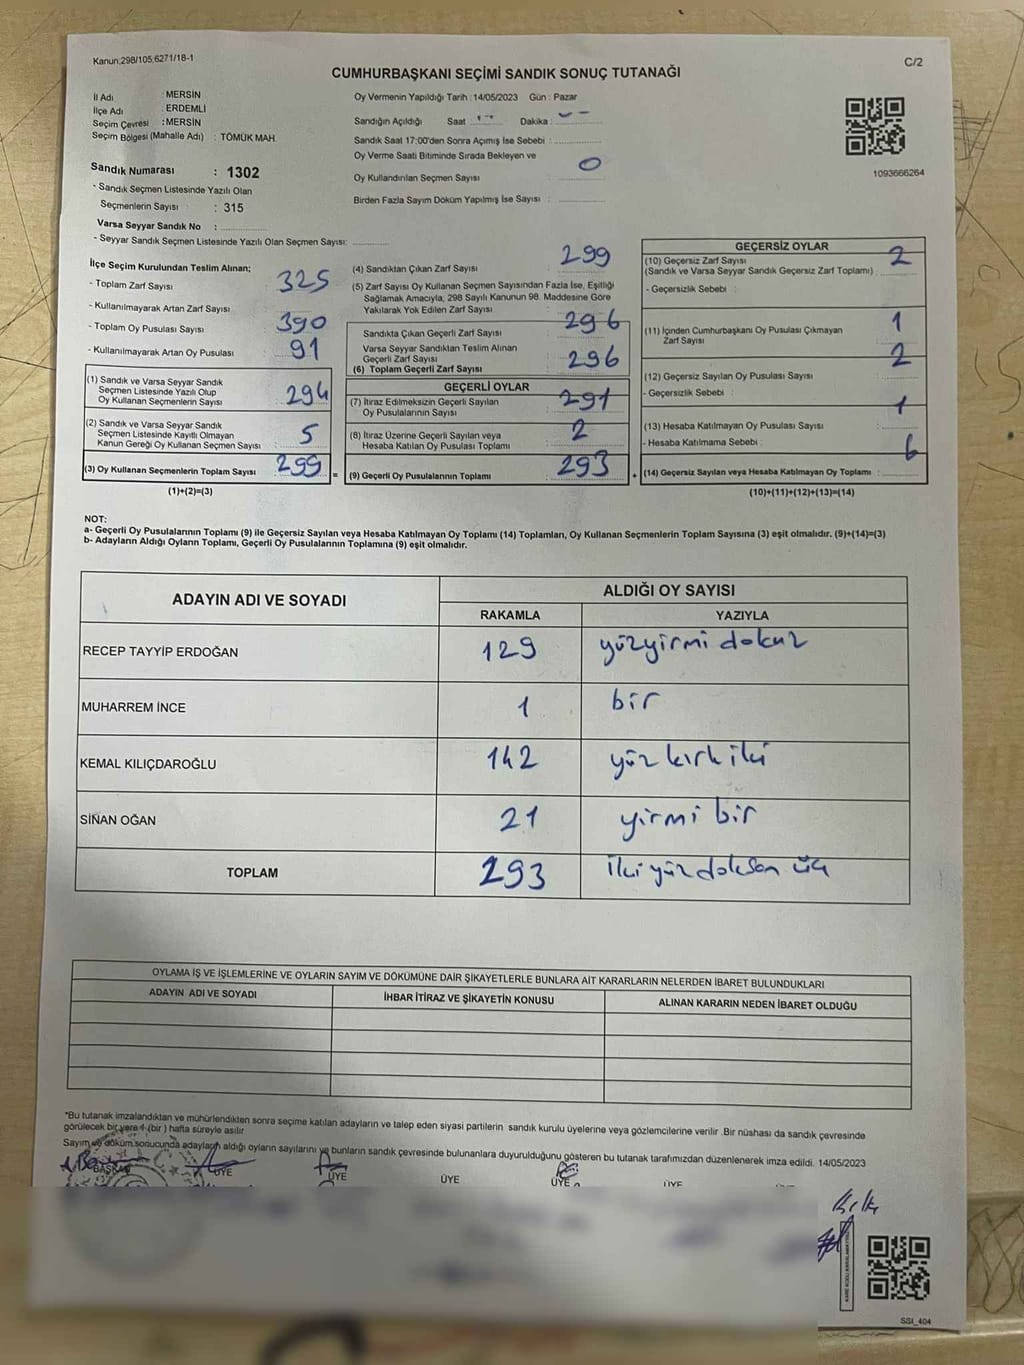 Kanun;298/105,6271/18-1
C/2
CUMHURBAŞKANI SEÇİMİ SANDIK SONUÇ TUTANAĞI
İl Adı : MERSİN
İlçe Adı : ERDEMLİ
Seçim Çevresi : MERSİN
Seçim Bölgesi (Mahalle Adı) : TÖMÜK MAH.
Sandık Numarası : 1302
- Sandık Seçmen Listesinde Yazılı Olan
Seçmenlerin Sayısı : 315
Varsa Seyyar Sandık No :
- Seyyar Sandık Seçmen Listesinde Yazılı Olan Seçmen Sayısı:
Oy Vermenin Yapıldığı Tarih : 14/05/2023 Gün : Pazar
Sandığın Açıldığı Saat Dakika :
Sandık Saat 17:00'den Sonra Açımış İse Sebebi :
Oy Verme Saati Bitiminde Sırada Bekleyen ve
Oy Kullandırılan Seçmen Sayısı : 0
Birden Fazla Sayım Döküm Yapılmış İse Sayısı :
1093666264
İlçe Seçim Kurulundan Teslim Alınan;
- Toplam Zarf Sayısı : 325
- Kullanılmayarak Artan Zarf Sayısı :
- Toplam Oy Pusulası Sayısı : 390
- Kullanılmayarak Artan Oy Pusulası : 91
(1) Sandık ve Varsa Seyyar Sandık
Seçmen Listesinde Yazılı Olup
Oy Kullanan Seçmenlerin Sayısı : 294
(2) Sandık ve Varsa Seyyar Sandık
Seçmen Listesinde Kayıtlı Olmayan
Kanun Gereği Oy Kullanan Seçmen Sayısı : 5
(3) Oy Kullanan Seçmenlerin Toplam Sayısı : 299
(1)+(2)=(3)
(4) Sandıktan Çıkan Zarf Sayısı : 299
(5) Zarf Sayısı Oy Kullanan Seçmen Sayısından Fazla İse, Eşitliği
Sağlamak Amacıyla; 298 Sayılı Kanunun 98. Maddesine Göre
Yakılarak Yok Edilen Zarf Sayısı :
Sandıkta Çıkan Geçerli Zarf Sayısı : 296
Varsa Seyyar Sandıktan Teslim Alınan
Geçerli Zarf Sayısı
(6) Toplam Geçerli Zarf Sayısı : 296
GEÇERLİ OYLAR
(7) İtiraz Edilmeksizin Geçerli Sayılan
Oy Pusulalarının Sayısı : 291
(8) İtiraz Üzerine Geçerli Sayılan veya
Hesaba Katılan Oy Pusulaları Toplamı : 2
= (9) Geçerli Oy Pusulalarının Toplamı : 293 +
GEÇERSİZ OYLAR
(10) Geçersiz Zarf Sayısı
(Sandık ve Varsa Seyyar Sandık Geçersiz Zarf Toplamı) : 2
- Geçersizlik Sebebi :
(11) İçinden Cumhurbaşkanı Oy Pusulası Çıkmayan
Zarf Sayısı : 1
(12) Geçersiz Sayılan Oy Pusulası Sayısı : 2
- Geçersizlik Sebebi :
(13) Hesaba Katılmayan Oy Pusulası Sayısı : 1
- Hesaba Katılmama Sebebi :
(14) Geçersiz Sayılan veya Hesaba Katılmayan Oy Toplamı : 6
(10)+(11)+(12)+(13)=(14)
NOT:
a- Geçerli Oy Pusulalarının Toplamı (9) ile Geçersiz Sayılan veya Hesaba Katılmayan Oy Toplamı (14) Toplamları, Oy Kullanan Seçmenlerin Toplam Sayısına (3) eşit olmalıdır. (9)+(14)=(3)
b- Adayların Aldığı Oyların Toplamı, Geçerli Oy Pusulalarının Toplamına (9) eşit olmalıdır.
ADAYIN ADI VE SOYADI ALDIĞI OY SAYISI
RAKAMLA YAZIYLA
RECEP TAYYİP ERDOĞAN 129 yüzyirmi dokuz
MUHARREM İNCE 1 bir
KEMAL KILIÇDAROĞLU 142 yüz kırk iki
SİNAN OĞAN 21 yirmi bir
TOPLAM 293 iki yüz doksan üç
OYLAMA İŞ VE İŞLEMLERİNE VE OYLARIN SAYIM VE DÖKÜMÜNE DAİR ŞİKAYETLERLE BUNLARA AİT KARARLARIN NELERDEN İBARET BULUNDUKLARI
ADAYIN ADI VE SOYADI İHBAR İTİRAZ VE ŞİKAYETİN KONUSU ALINAN KARARIN NEDEN İBARET OLDUĞU
*Bu tutanak imzalandıktan ve mühürlendikten sonra seçime katılan adayların ve talep eden siyasi partilerin sandık kurulu üyelerine veya gözlemcilerine verilir .Bir nüshası da sandık çevresinde
görülecek bir yere 1 (bir ) hafta süreyle asılır
Sayım ve döküm sonucunda adayların aldığı oyların sayılarını ve bunların sandık çevresinde bulunanlara duyurulduğunu gösteren bu tutanak tarafımızdan düzenlenerek imza edildi. 14/05/2023
BAŞKAN ÜYE ÜYE ÜYE ÜYE ÜYE
SSI_404